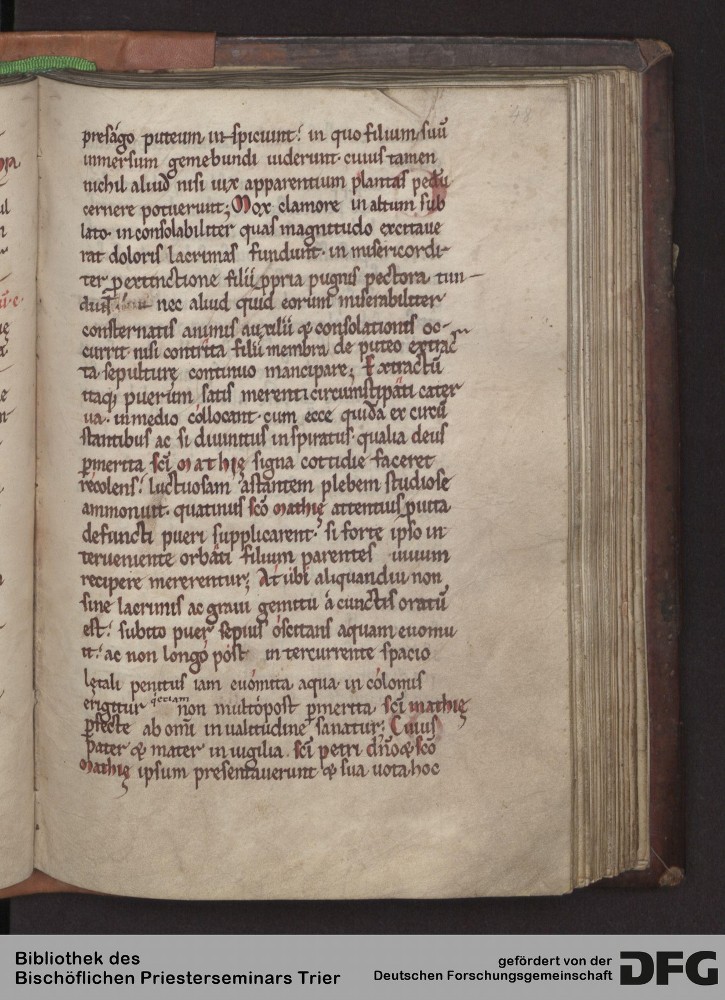 presago puteum inspiciunt: in quo filium suū
inmersum gemebundi uiderunt. cuius tamen
nichil aliud nisi uix apparentium plantas pedū
cernere potuerunt; Mox clamore in altum sub
lato. inconsolabiliter quas magnitudo excitaue
rat doloris lacrimas fundunt. in misericordi
ter p extinctione filii ppria pugnis pectora tun
nec aliud quid eorum miserabiliter
consternatis animis auxilii & consolationis oc-
currit. nisi contrita filii membra de puteo extrac
ta sepulturę continuo mancipare; Extractū
itaq; puerum satis merenti circumstipati cater
ua. in medio collocant. cum ecce quidā ex circū
stantibus ac si diuinitus inspiratus. qualia deus
p merita sc̄i Mathię signa cottidie faceret
recolens: luctuosam astantem plebem studiose
ammonuit. quatinus sc̄o Mathię attentius p uita
defuncti pueri supplicarent. si forte ipso in
terueniente orbati filium parentes uiuum
recipere mererentur; At ubi aliquandiu non
sine lacrimis ac graui gemitu a cunctis oratū
est: subito puer sepius oscitans aquam euomu
it: ac non longo post intercurrente spacio
lętali penitus iam euomita aqua in colomis
erigitur non multopost p merita sc̄i mathię
pfecte ab om̄i inualitudine sanatur; Cuius
pater & mater in uigilia sc̄i petri dn̄o & sc̄o
Mathię ipsum presentauerunt & sua uota. hoc
Bibliothek des
Bischöflichen Priesterseminars Trier
gefördert von der
Deutschen Forschungsgemeinschaft
DFG